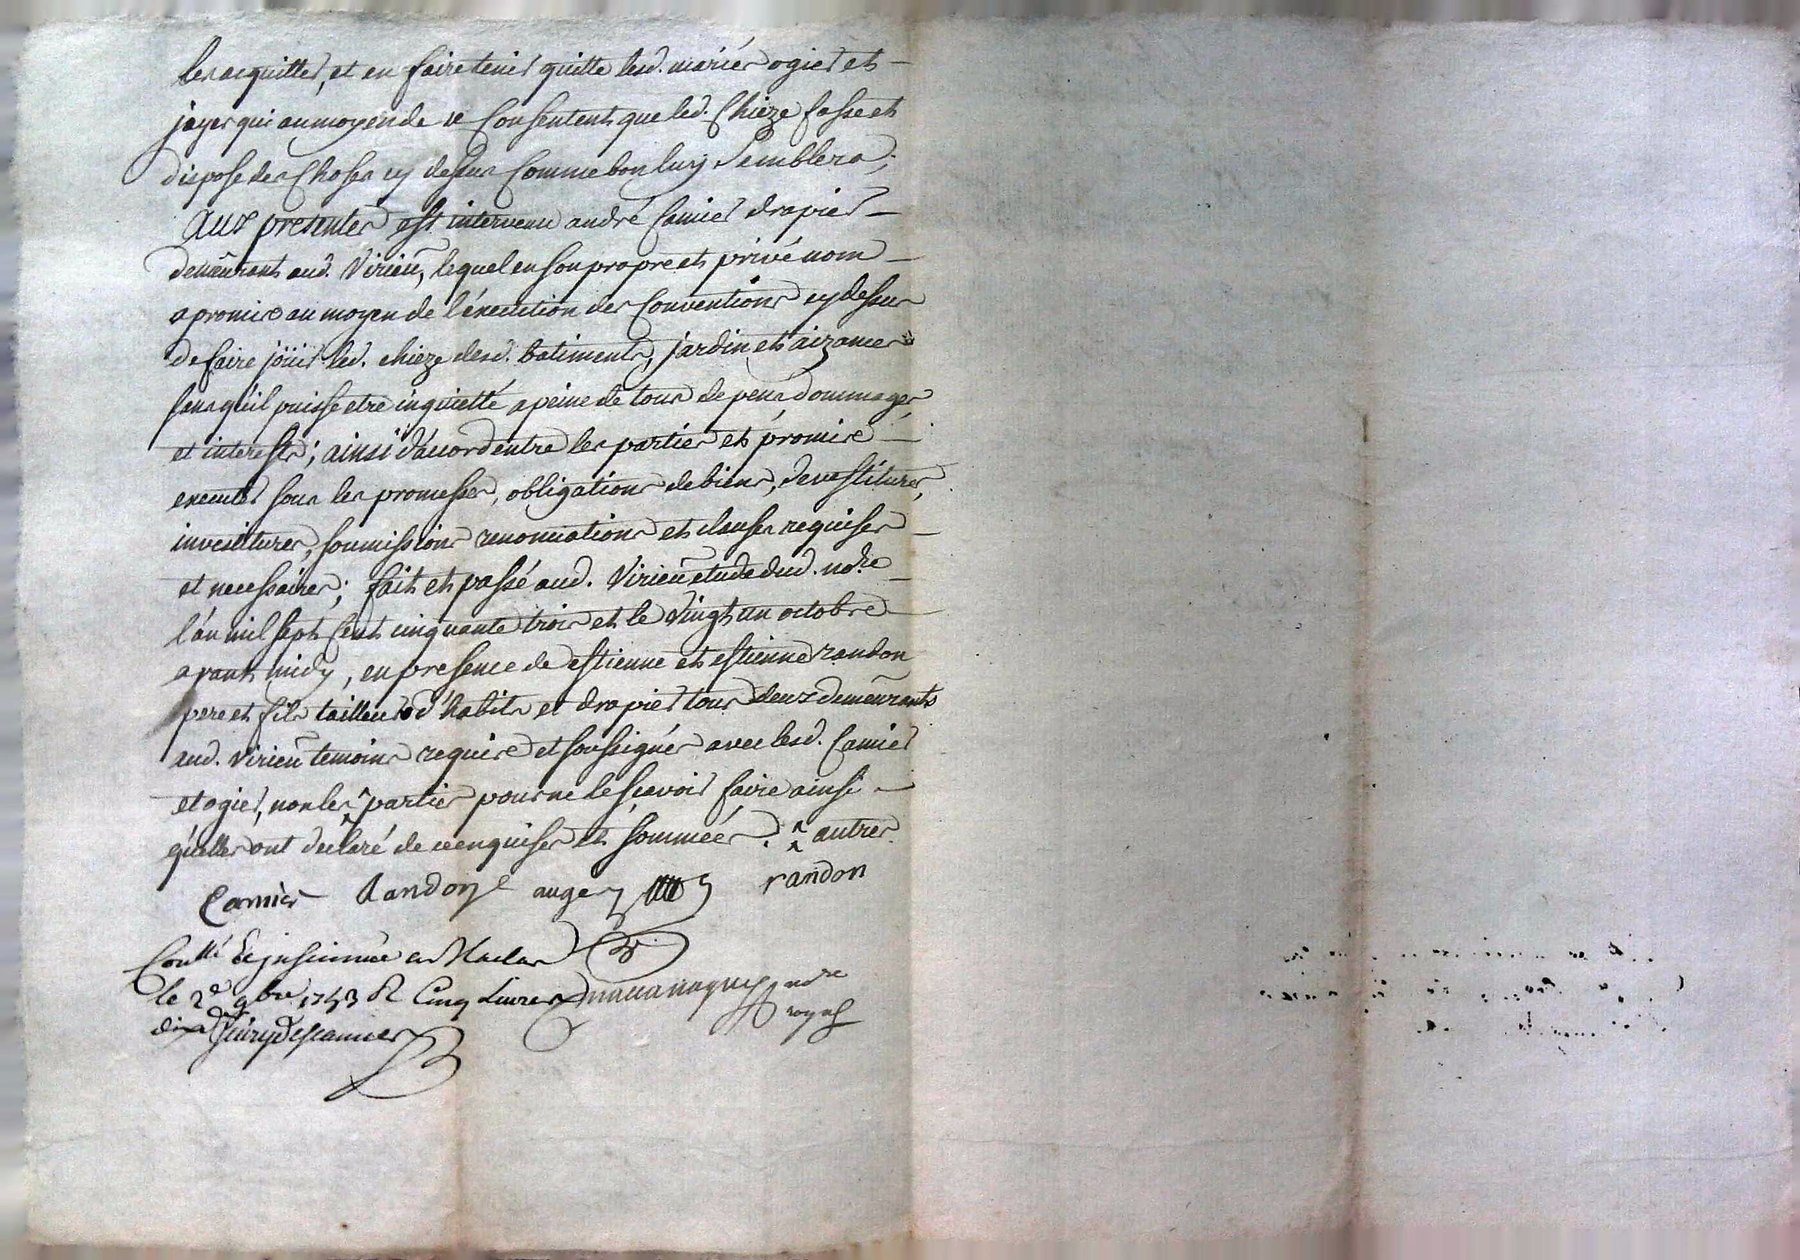 les acquitter, et en faire tenir quitte lesd. mariés ogier et
jayer qui au moyen de ce Consentent que led. Chieze fasse et
dispose des Choses cy dessus Comme bon luy Semblera;
aux presentes est intervenu andré Camier drapier
demeurant aud. Virieu, lequel en son propre et privé nom
a promis au moyen de l'éxecution des Conventions cy dessus
de faire joüir led. chieze desd. batiments, jardin et aizances
sans qu'il puisse etre inquietté a peine de tous depens dommages
et interests; ainsi d'accord entre les parties et promis
executer sous les promesses, obligations de biens, devestitures,
investitures, soumissions renonciations et clauses requises
et necessaires; fait et passé aud. Virieu etude dud. no.re
l'an mil sept Cent cinquante trois et le vingt un octobre
avant midy, en presence de estienne et estienne randon
pere et fils tailleur d'habits et drapier tous deux demeurants
aud. Virieu temoins requis et soussignés avec lesd. Camier
et ogier, non les ^ parties pour ne le sçavoir faire ainsi
qu'elles ont declaré de ce enquises et sommeés. ^ autres
Camier Randon auger randon
Con.llé & insinuée a Maclas
le 2e 9bre 1753 R Cinq Livres
dix
no.re
royal